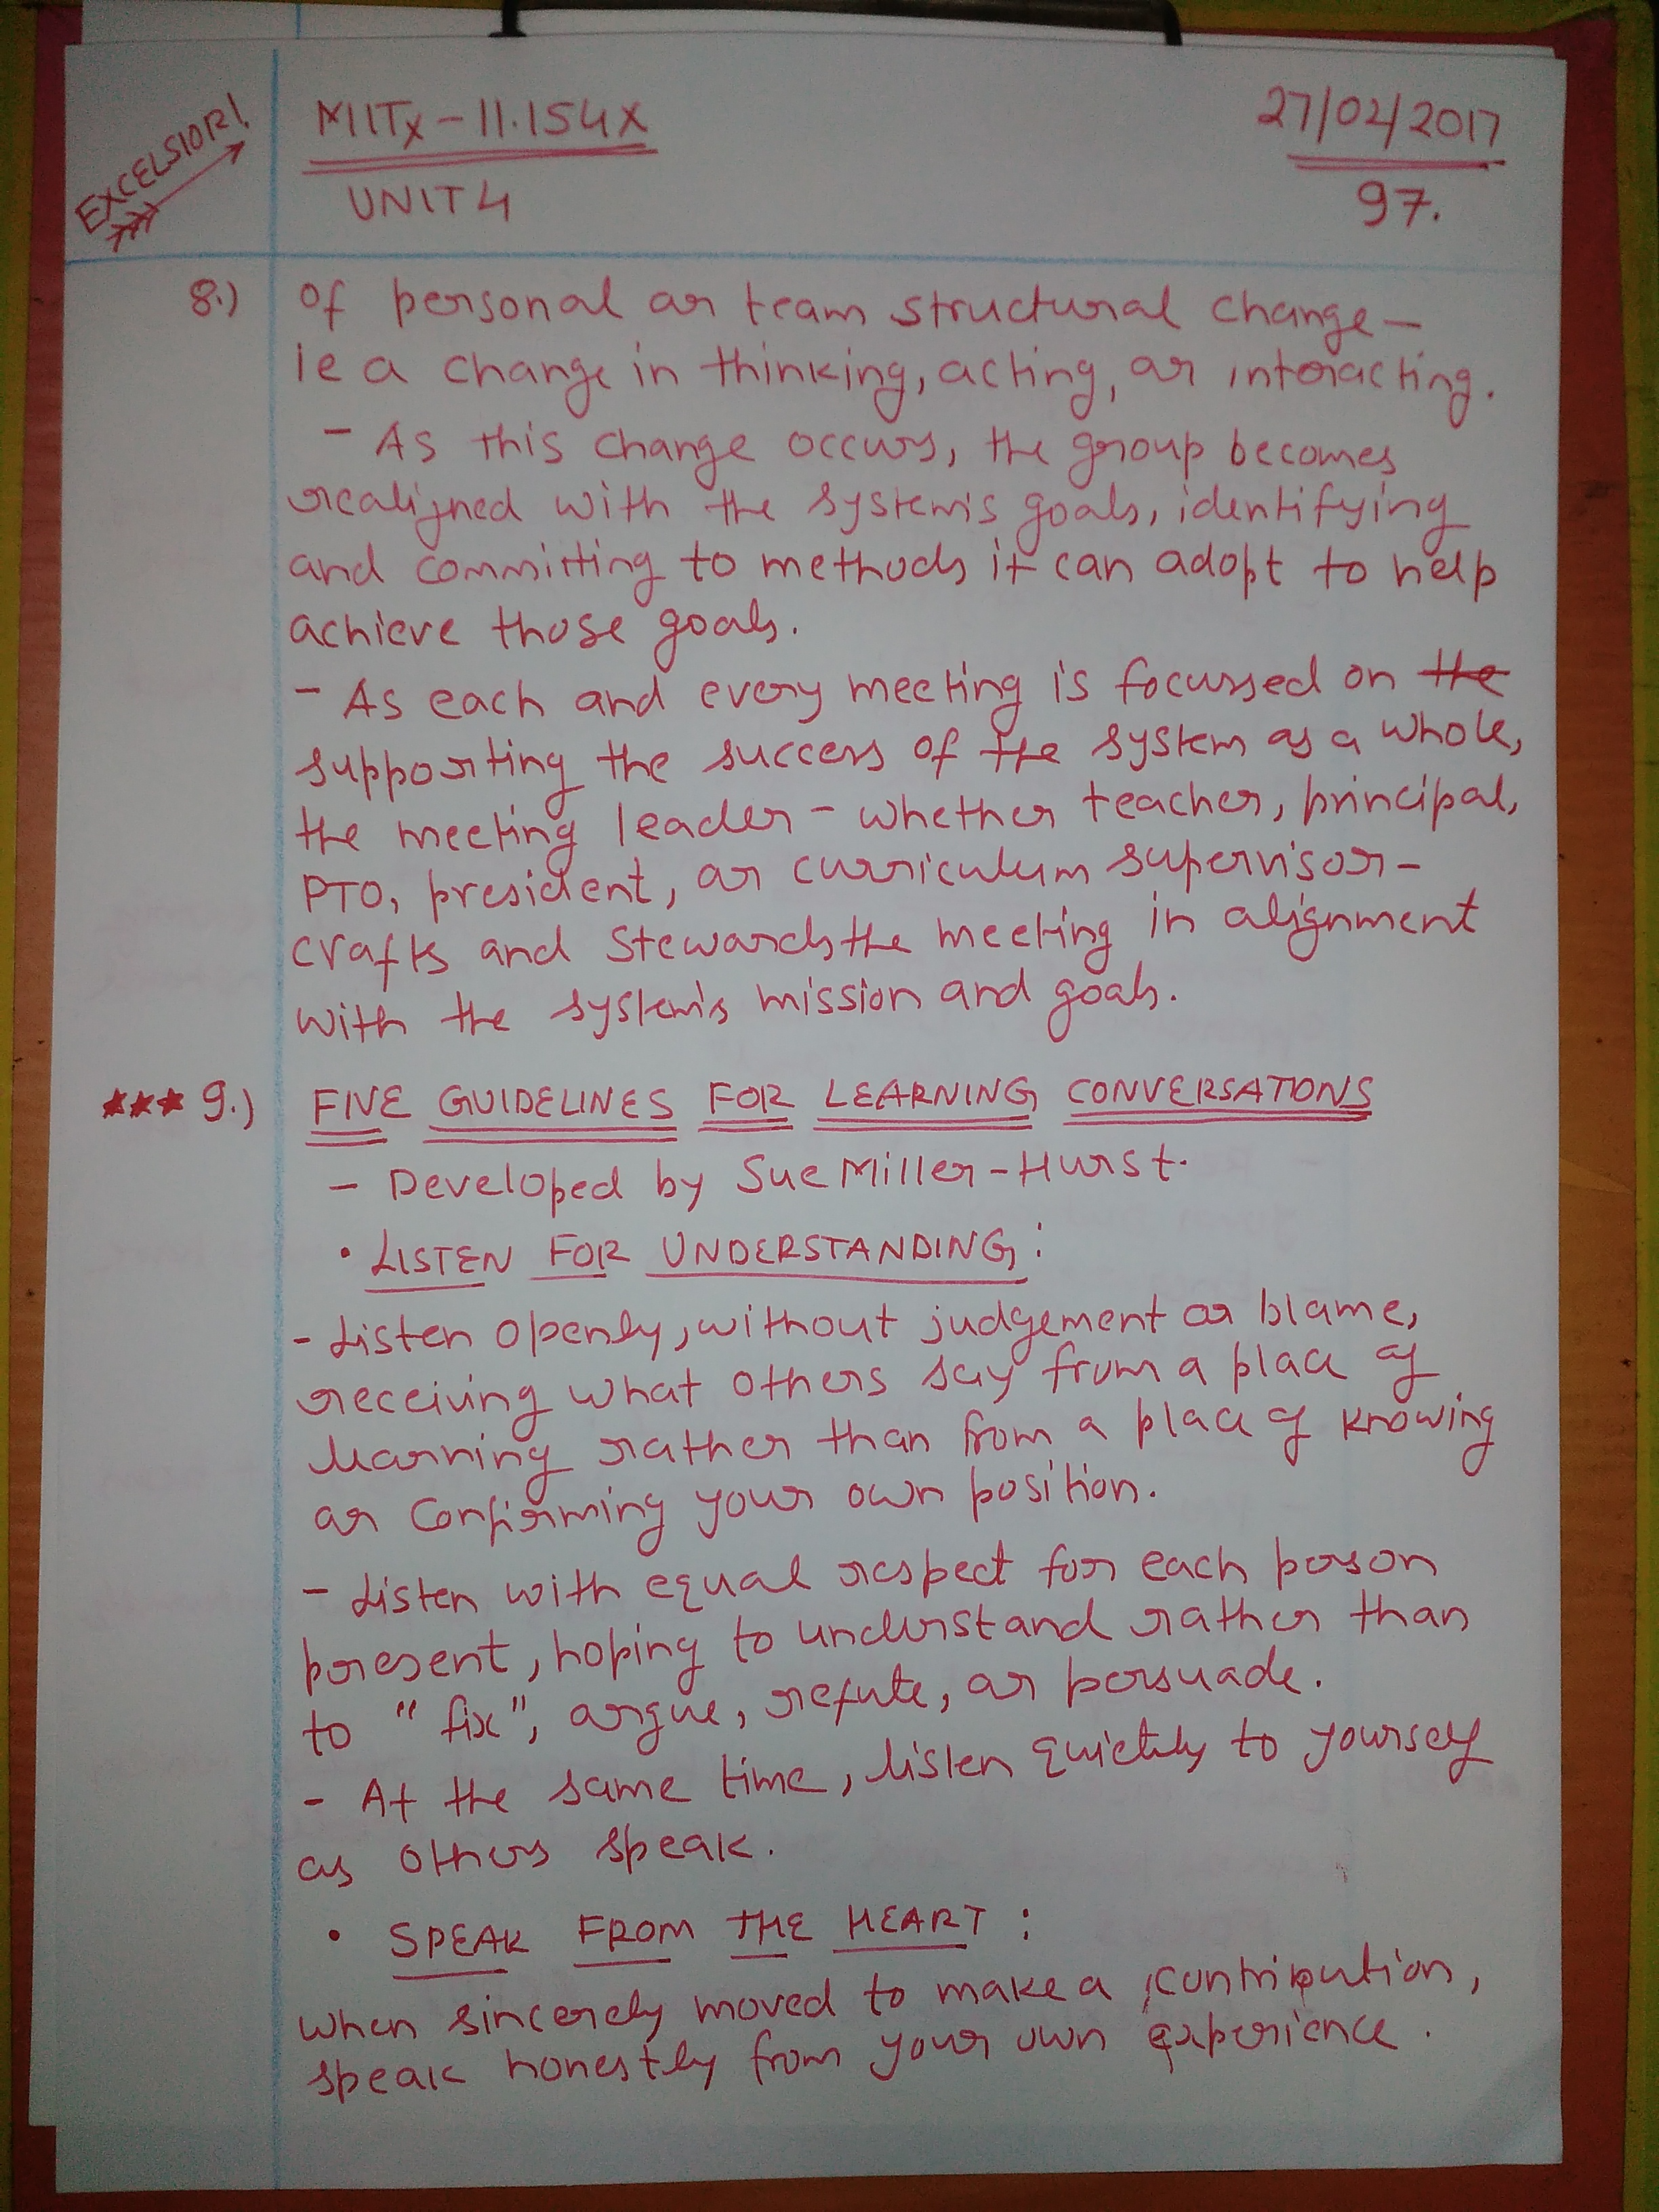 EXCELSIOR!
MITx - 11.154x
27/02/2017
UNIT 4
97.
8.) of personal or team structural change -
ie a change in thinking, acting, or interacting.
- As this change occurs, the group becomes
realigned with the system's goals, identifying
and committing to methods it can adopt to help
achieve those goals.
- As each and every meeting is focussed on the
supporting the success of the system as a whole,
the meeting leader - whether teacher, principal,
PTO, president, or curriculum supervisor -
crafts and stewards the meeting in alignment
with the system's mission and goals.
*** 9.) FIVE GUIDELINES FOR LEARNING CONVERSATONS
- Developed by Sue Miller-Hurst.
• LISTEN FOR UNDERSTANDING:
- Listen openly, without judgement or blame,
receiving what others say from a place of
learning rather than from a place of knowing
or confirming your own position.
- Listen with equal respect for each person
present, hoping to understand rather than
to "fix", argue, refute, or persuade.
- At the same time, listen quietly to yourself
as others speak.
• SPEAK FROM THE HEART:
When sincerely moved to make a contribution,
speak honestly from your own experience.